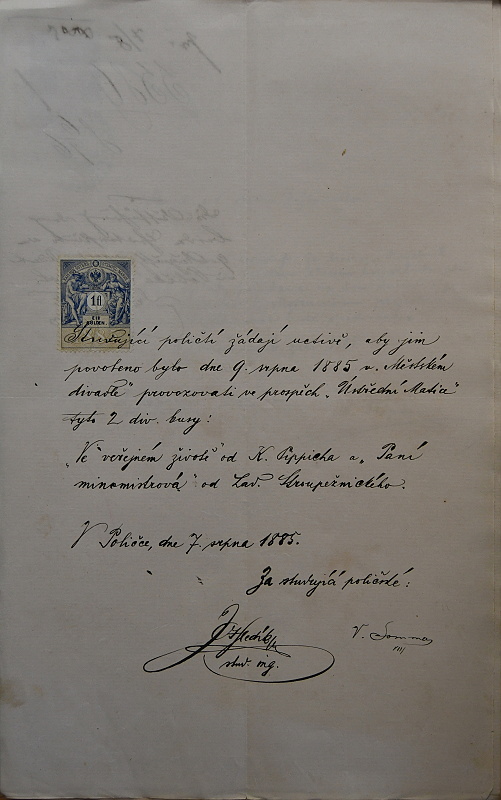 1 fl
EIN
GULDEN.
Studující poličtí žádají uctivě, aby jim
povoleno bylo dne 9. srpna 1885 v „Městském
divadle" provozovati ve prospěch „Ústřední Matice"
tyto 2 div. kusy:
„Ve veřejném životě" od K. Pippicha a „Paní
mincmistrová" od Lad. Stroupežnického.
V Poličce, dne 7. srpna 1885.
Za studující poličské:
stud. ing.
V.